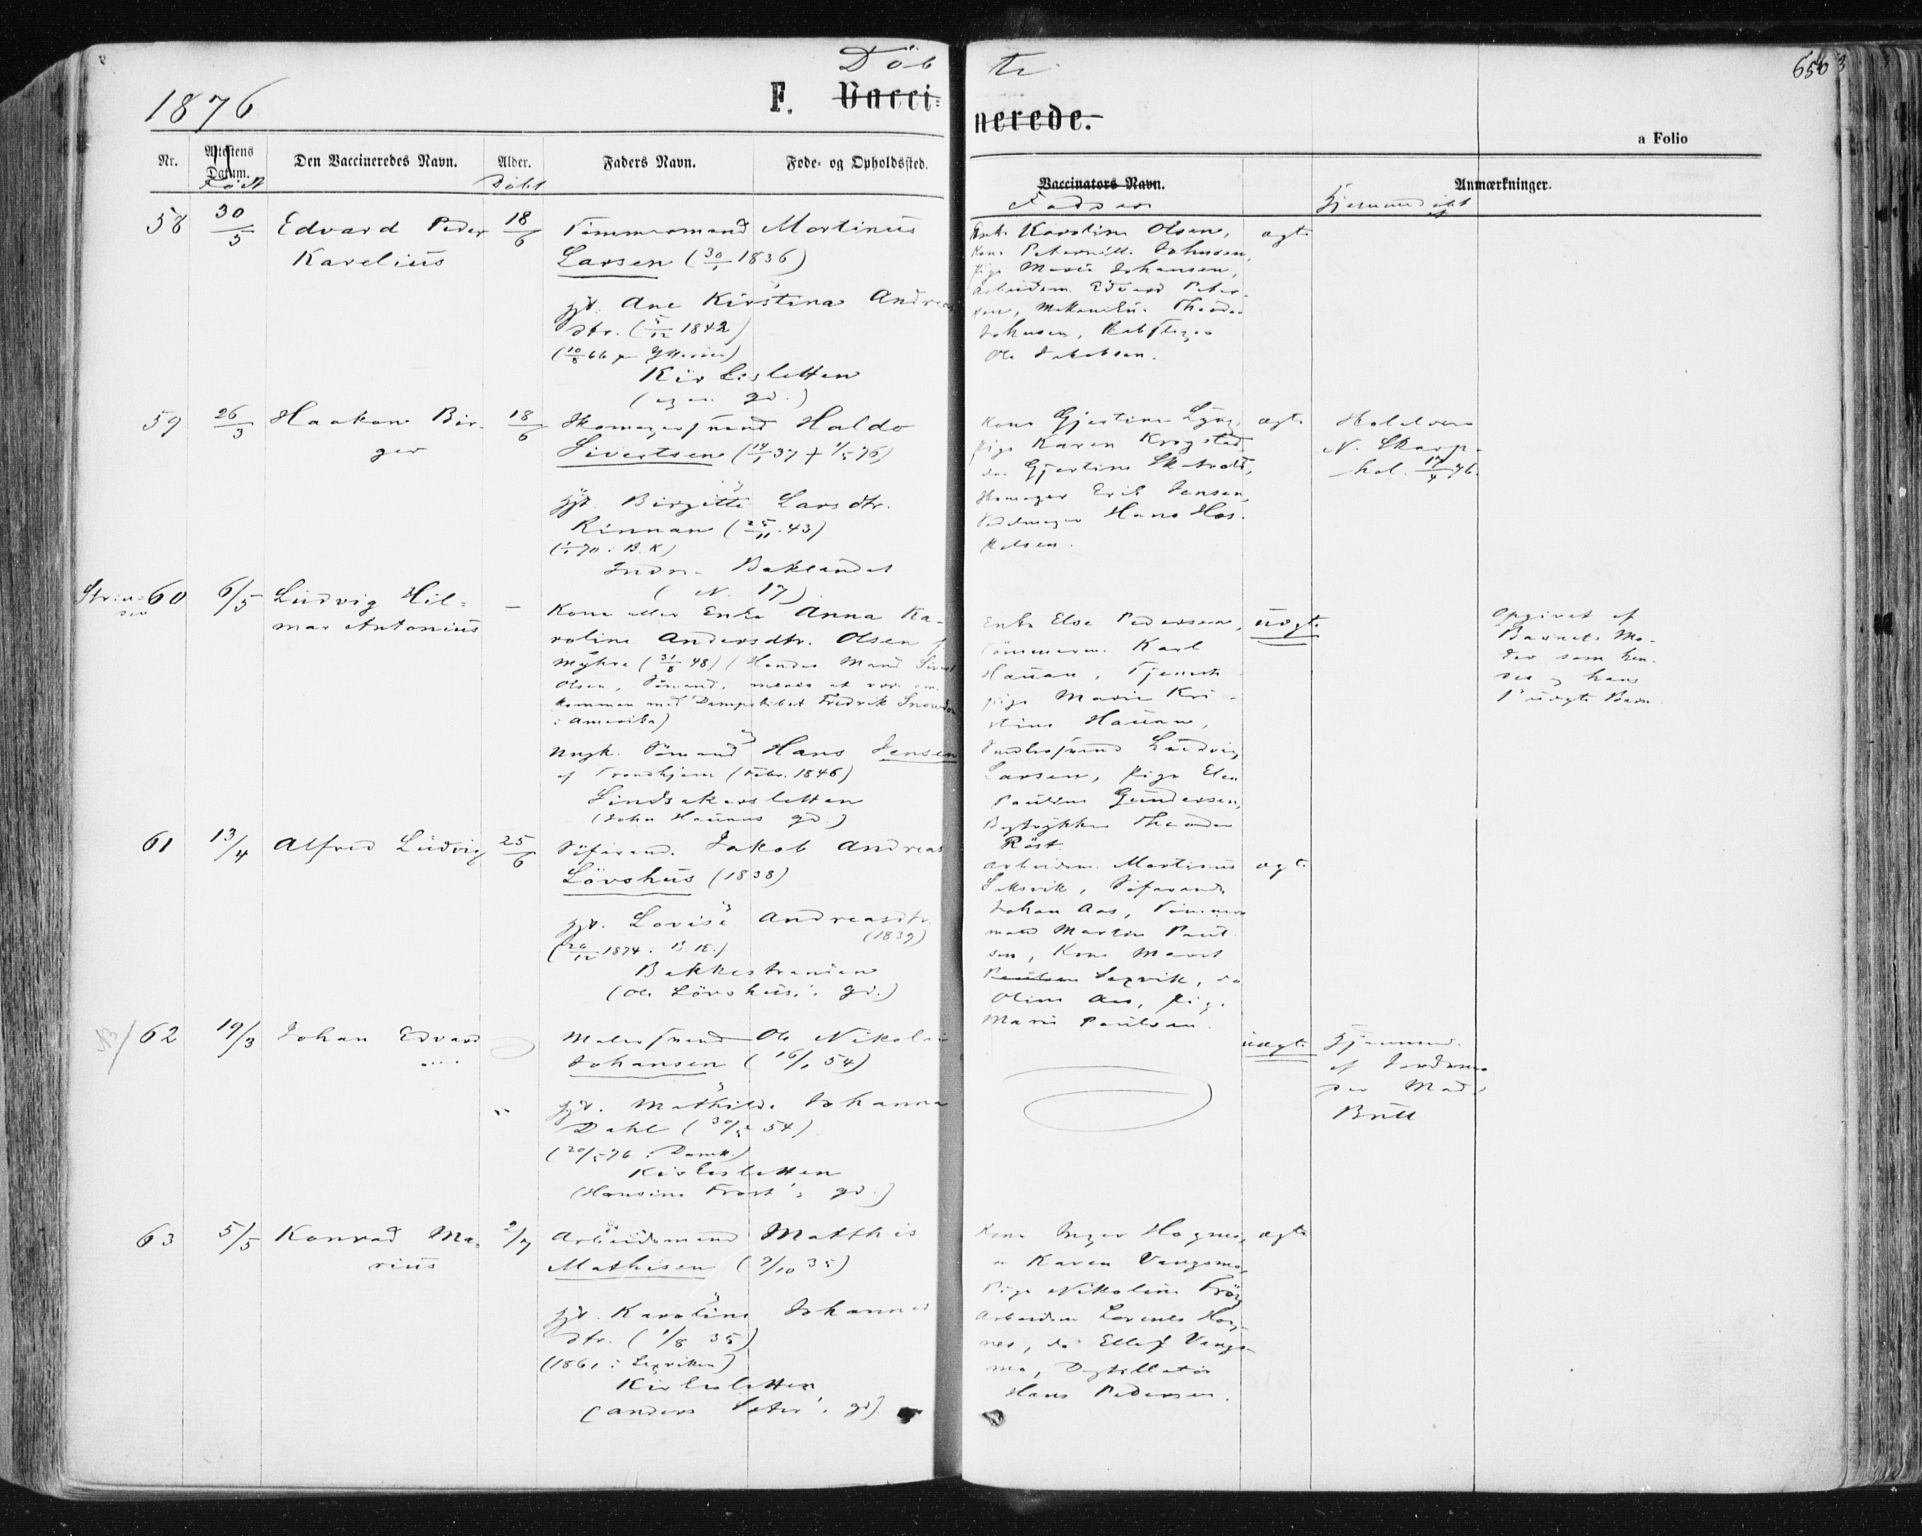 Döb te
6563
1876
F. Vacci-nerede.
a Folio
Nr.
Attestens Datum.
Født
Den Vaccineredes Navn.
Alder.
Döbt
Faders Navn.
Føde- og Opholdssted.
Vaccinators Navn.
Faddere
Hjemmedöbt
Anmærkninger.
58 30/5 Edvard Peder 18/6 Tömmermand Mortinus
Karelius Larsen (30/1 1836)
gjt. Ane Kirstina Andreas
dtr. (5/12 1842)
Kirkesletten
(egen gd.)
Enke Karoline Olsen, ægt.
Kone Peternille Johnsen,
Pige Marie Johansen,
Arbeidsm. Edvard Peter-
sen, Mekanikus Theodor
Johnsen, Rebslager
Ole Jakobsen.
59 26/3 Haakon Bir- 18/6 Skomagersvend Haldo
ger Sivertsen (14/1 37 + 1/5 76)
gjt. Birgitte Larsdtr.
Rinnan (25/11 43)
(1/1 70 i B.K.)
Indre Baklandet
(N. 17)
Kone Gjertine Lyng, ægt.
Pige Karen Krogstad
do Gjertine Skatvold,
Skomager Erik Jensen,
Hans Has-
kelsen.
Haldorsen
N. Skarp-
hol. 17/4 76.
Strin- 60 6/5 Ludvig Hil- —
mar Antonius
Kone eller Enke Anna Ka-
roline Andersdtr. Olsen f.
Myhre (31/8 48) (Hendes Mand Sivert
Olsen, Sömand, menes at være om-
kommen med Dampskibet Fredrik Snowdon
i Amerika)
og
Ungk. Sömand Hans Jensen
af Trondhjem (Febr. 1846)
Lindsakersletten
(John Hauans gd.)
Enke Else Pedersen, uægt.
Tömmerm. Karl
Hauan, Tjeneste-
pige Marie Kri-
stine Hauan,
Ludvig
Larsen, Pige Elen
Pauline Gundersen,
Bogtrykker Theodor
Röst.
Opgivet af
Barnets Mo-
der som hen-
des og hans
1' uægte Barn.
61 13/4 Alfred Ludvig 25/6 Söfarend. Jakob Andreas
Lövshus (1838)
gjt. Lovise Andreasdtr.
(1839)
(26/12 1874 i B.K.)
Bakkestranden
(Ole Lövshus's gd.)
Arbeidsm. Martinus ægt.
Saksvik, Söfarende
Johan Aas, Tömmer-
mand Martin Paul-
sen, Kone Marit
Paulsen Saxvik, do
Oline Aas, Pige
Marie Paulsen.
62 19/3 Johan Edvard Malersvend Ole Nikolai
Johansen (16/1 54)
gjt. Mathilde Johanna
Dahl (30/5 54)
(20/5 76 i Domk.)
Kirkesletten
(Hansine Frost's gd.)
uægt. Hjemmed.
af Jordmo-
der Mad.
Britt
63 5/5 Konrad Ma- 2/7 Arbeidsmand Matthis
rius Mathisen (9/10 35)
gjt. Karoline Johannes
dtr. (1/8 35)
(1861 i Lexviken)
Kirkesletten
(Anders Sæter's gd.)
Kone Inger Hognes, ægt.
" Karen Vangsmo,
Pige Nikoline Frög
Arbeidsm. Lorents Hog-
nes, do Ellef Vangs-
mo, Destillatör
Hans Pedersen.